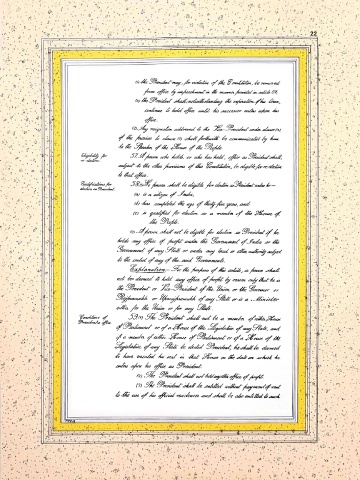 22
(b) the President may, for violation of the Constitution, be removed
from office by impeachment in the manner provided in article 61;
(c) the President shall, notwithstanding the expiration of his term,
continue to hold office until his successor enters upon his
office.
(2) Any resignation addressed to the Vice-President under clause (a)
of the proviso to clause (1) shall forthwith be communicated by him
to the Speaker of the House of the People.
Eligibility for
re-election.
57. A person who holds, or who has held, office as President shall,
subject to the other provisions of this Constitution, be eligible for re-election
to that office.
Qualifications for
election as President.
58. (1) No person shall be eligible for election as President unless he—
(a) is a citizen of India,
(b) has completed the age of thirty-five years, and
(c) is qualified for election as a member of the House of
the People.
(2) A person shall not be eligible for election as President if he
holds any office of profit under the Government of India or the
Government of any State or under any local or other authority subject
to the control of any of the said Governments.
Explanation.—For the purposes of this article, a person shall
not be deemed to hold any office of profit by reason only that he is
the President or Vice-President of the Union or the Governor or
Rajpramukh or Uparajpramukh of any State or is a Minister
either for the Union or for any State.
Conditions of
President's office.
59. (1) The President shall not be a member of either House
of Parliament or of a House of the Legislature of any State, and
if a member of either House of Parliament or of a House of the
Legislature of any State be elected President, he shall be deemed
to have vacated his seat in that House on the date on which he
enters upon his office as President.
(2) The President shall not hold any other office of profit.
(3) The President shall be entitled without payment of rent
to the use of his official residences and shall be also entitled to such